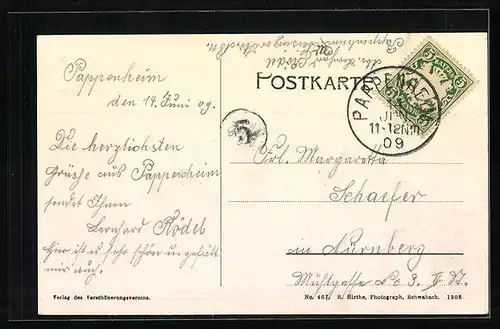 Pappenheim
den 14. Juni 09.
Die herzlichsten
Grüsse aus Pappenheim
sendet Ihnen
Bernhard Rödel
hier ist es sehr schön u. gefällt
mir auch.
POSTKARTE
PAPPENHEIM
JUN
11-12 NM
09
5
5
Frl. Margaretta
Schaefer
in Nürnberg
Mühlgasse No 3. II St.
Verlag des Verschönerungsvereins.
No. 467. R. Hirthe, Photograph, Schwabach. 1908